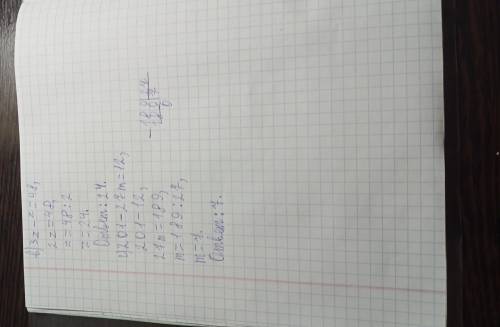 б) 3z - z = 48,
2z = 48,
z = 48 : 2
z = 24.
Ответ: 24.
г) 201 - 27m = 12,
201 - 12,
27m = 189,
m = 189 : 27,
m = 7.
Ответ: 7.
- 189 | 27
189 | 7
0